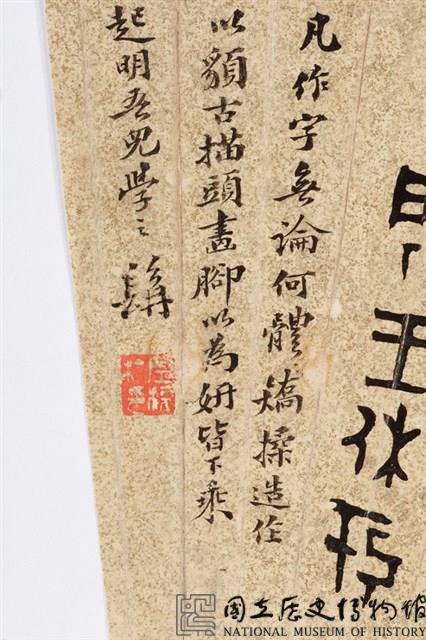 王休
凡作字無論何體矯揉造作
以額古描頭畫腳以為妍皆下乘
起明吾兄學之
國立歷史博物館
NATIONAL MUSEUM OF HISTORY